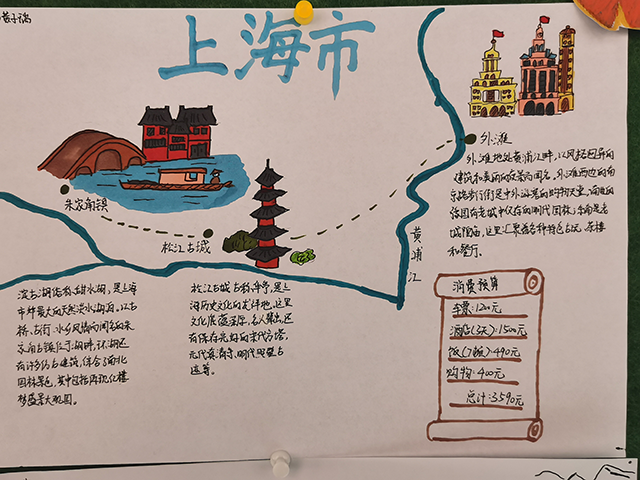 上海市
外滩
外滩地处黄浦江畔，以风格迥异的
建筑和美丽的夜景为闻名。外滩西边的南
京路步行街是中外游客的购物天堂，南边的
城隍庙，这里汇聚着各种特色古玩、茶楼
和餐厅。
朱家角镇
松江古城
黄浦江
淀山湖俗称甜水湖，是上海
市种最大的天然淡水湖泊，以古
桥、古街、水乡风情而闻名的朱
家角古镇位于湖畔，环湖还
有许多仿古建筑，综合了南北
园林景色，其中包括再现红楼
梦盛景大观园。
松江古城古称华亭，是上
海历史文化的发祥地，这里
文化底蕴深厚，名人辈出，还
有保存完好的宋代方塔，
元代真清寺、明代照壁古
迹等。
消费预算
车票：1200元
酒店(3天)：1500元
饭(7顿)：490元
购物：400元
总计：3590元